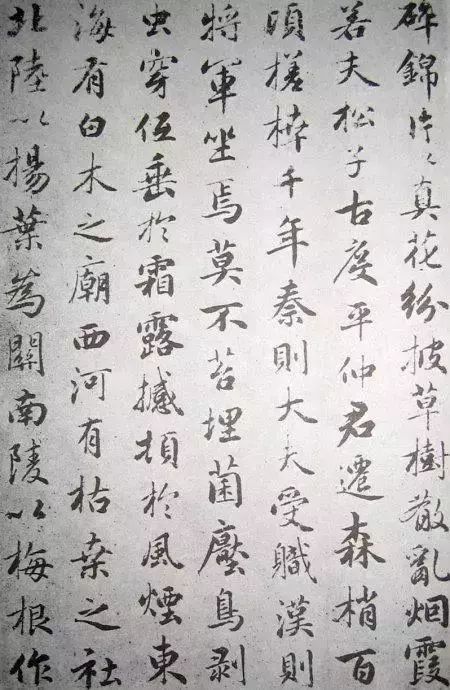 碎錦片々真花紛披草樹散亂烟霞
若夫松子古度平仲君遷森梢百
頃槎枿千年秦則大夫受職漢則
將軍坐焉莫不苔埋菌壓鳥剥
虫穿低垂於霜露撼頓於風煙東
海有白木之廟西河有枯桒之社
北陸以楊葉為關南陵以梅根作